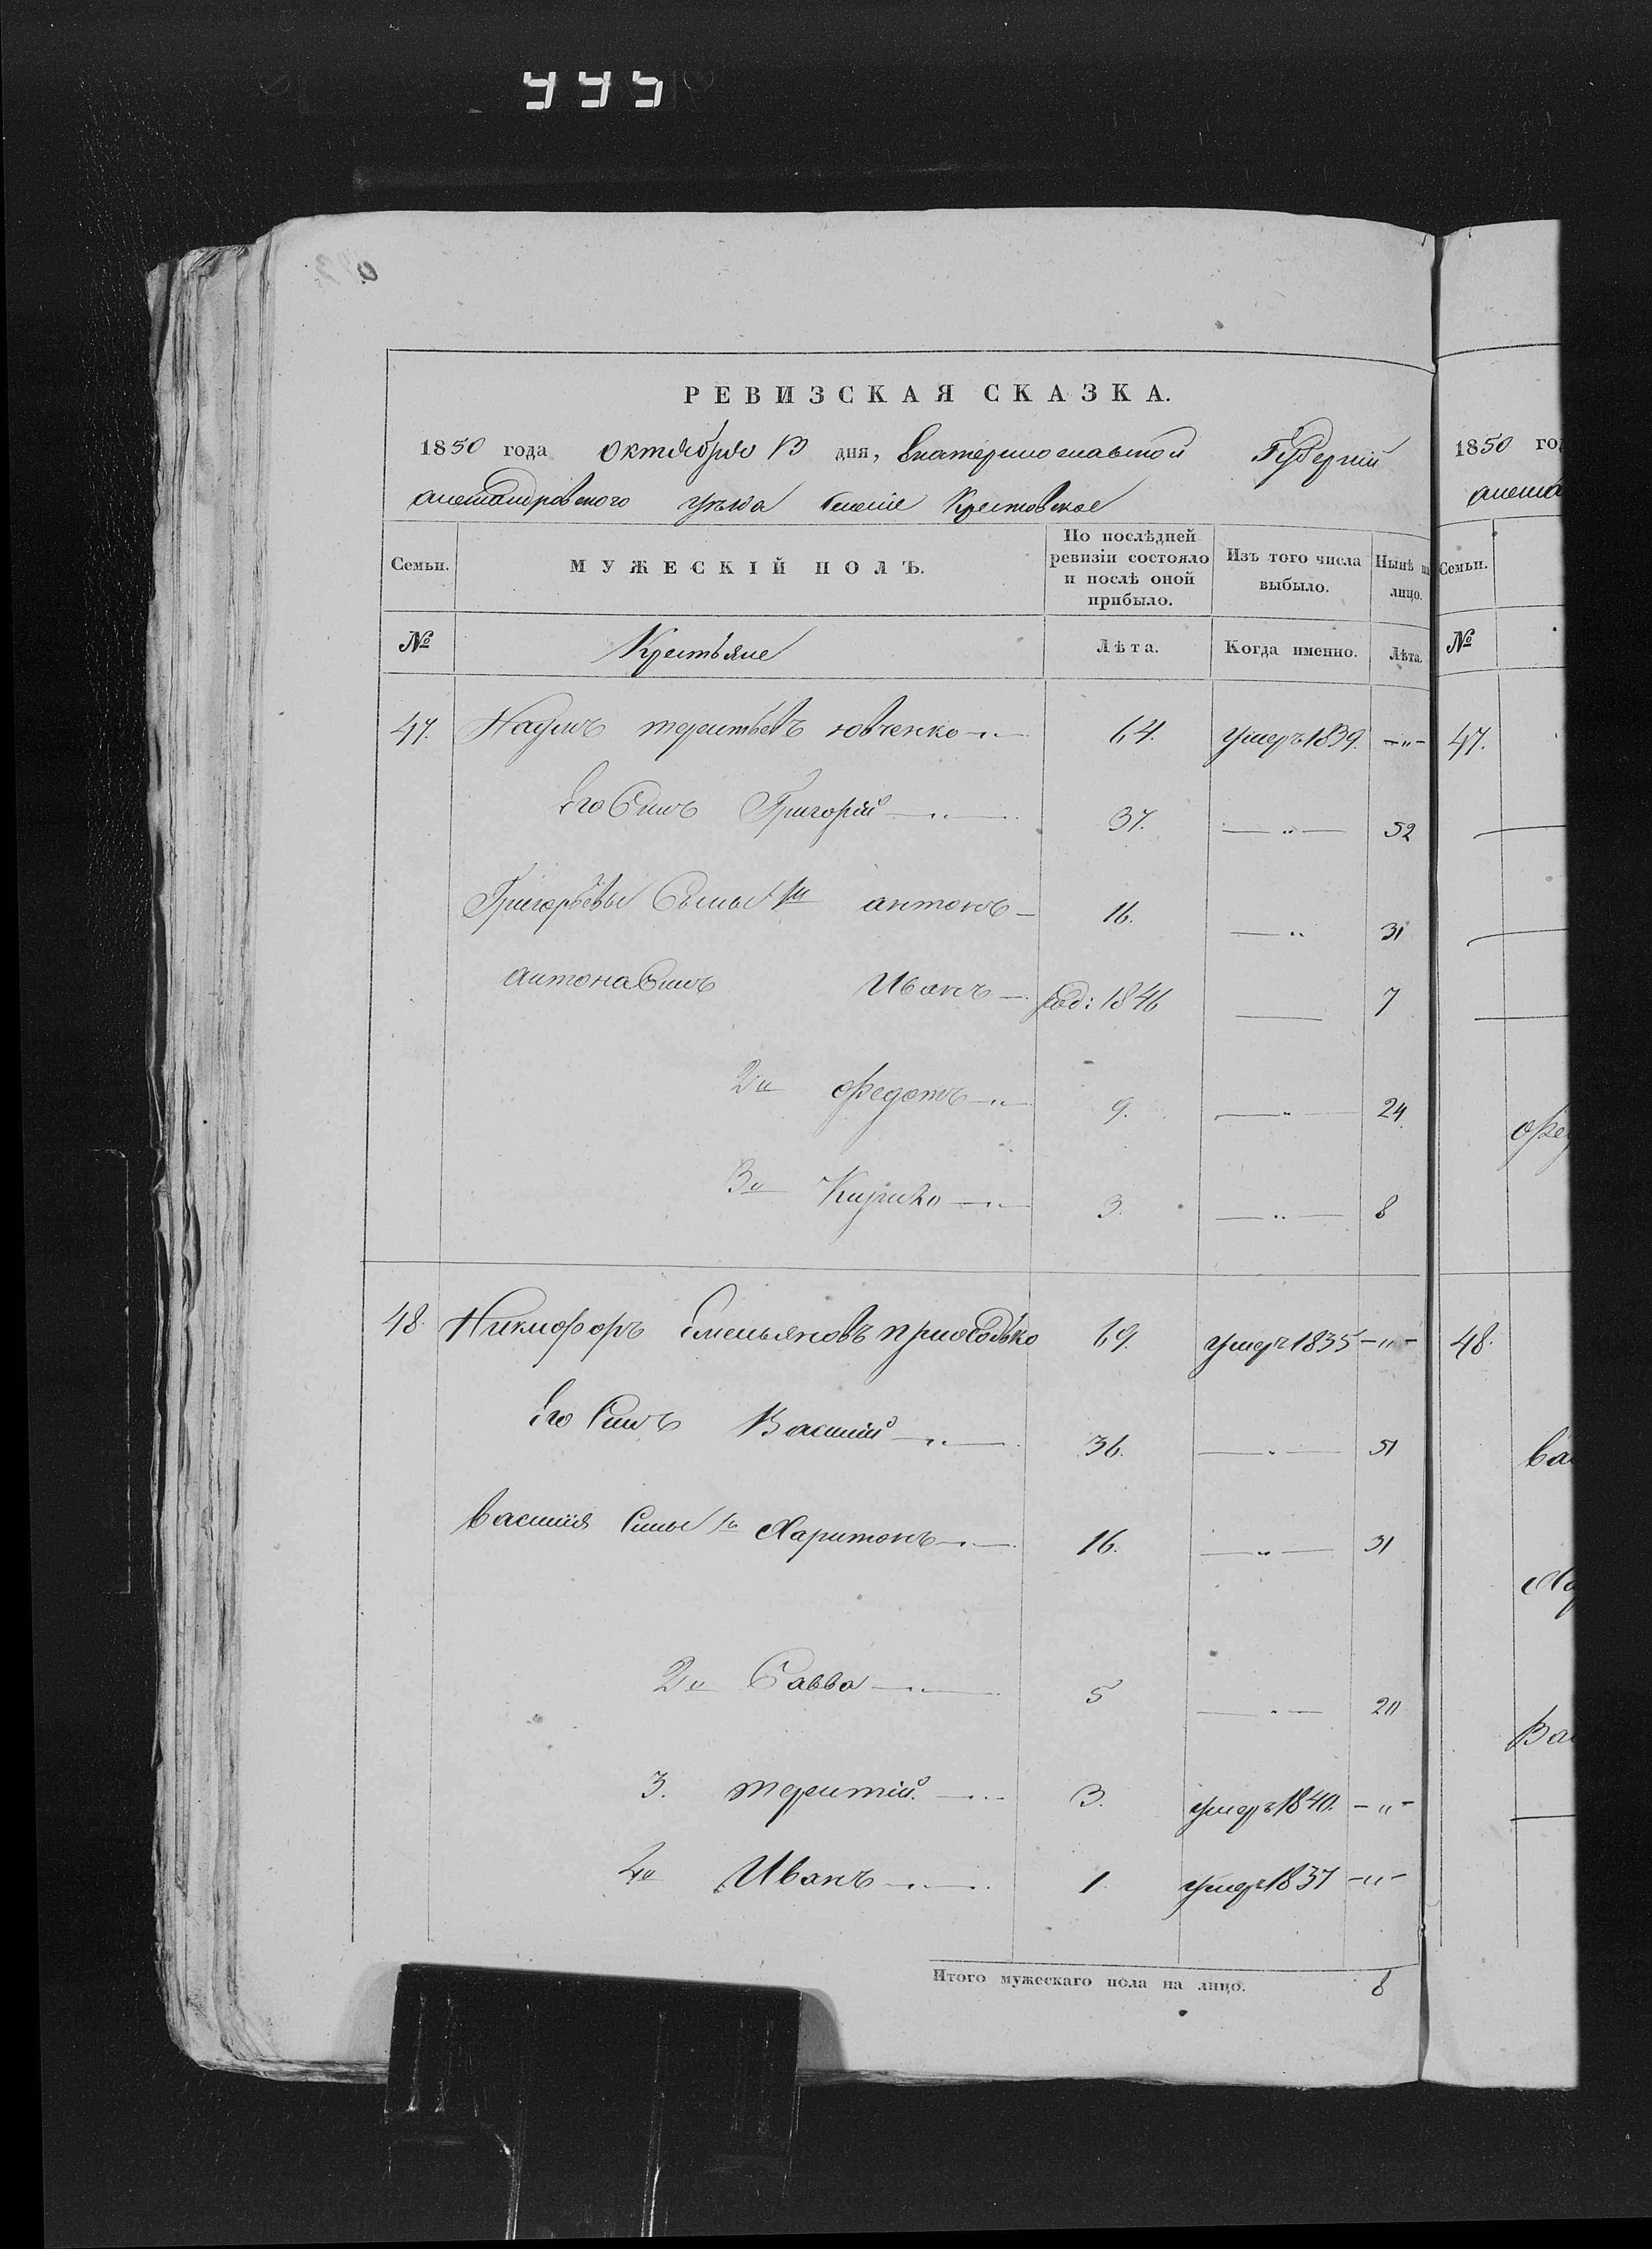 РЕВИЗСКАЯ СКАЗКА.
1850 года октября 13 дня, Екатеринославской Губерній
александровского уезда Имение Крестовское
Семьи. МУЖЕСКІЙ ПОЛЪ. По послѣдней ревизіи состояло и послѣ оной прибыло. Изъ того числа выбыло. Нынѣ на лицо.
№ Крестьяне Лѣта. Когда именно. Лѣта.
47. Наумъ терентьевъ ювченко 64. умеръ 1839. —„—
Его Сынъ Григорій —„— 37. —„— 52
Григорьевы Сыны 1й антонъ — 16. —„ 31
антона Сынъ Иванъ — род: 1846 — 7
2й Федотъ —„— 9. —„— 24
3й —„— 3. —„— 8
48. Никифоръ Емельяновъ 69. умеръ 1835 —„—
Его Сынъ Василій —„— 36. —„— 51
Василія Сыны 1й Харитонъ —„— 16. —„— 31
2й Савва —„— 5 —„— 20
3. терентій. —„— 3. умеръ 1840. —„—
4й Иванъ —„— 1 умеръ 1837 —„—
Итого мужескаго пола на лицо. 8
1850 го
Семьи.
№
47.
48.